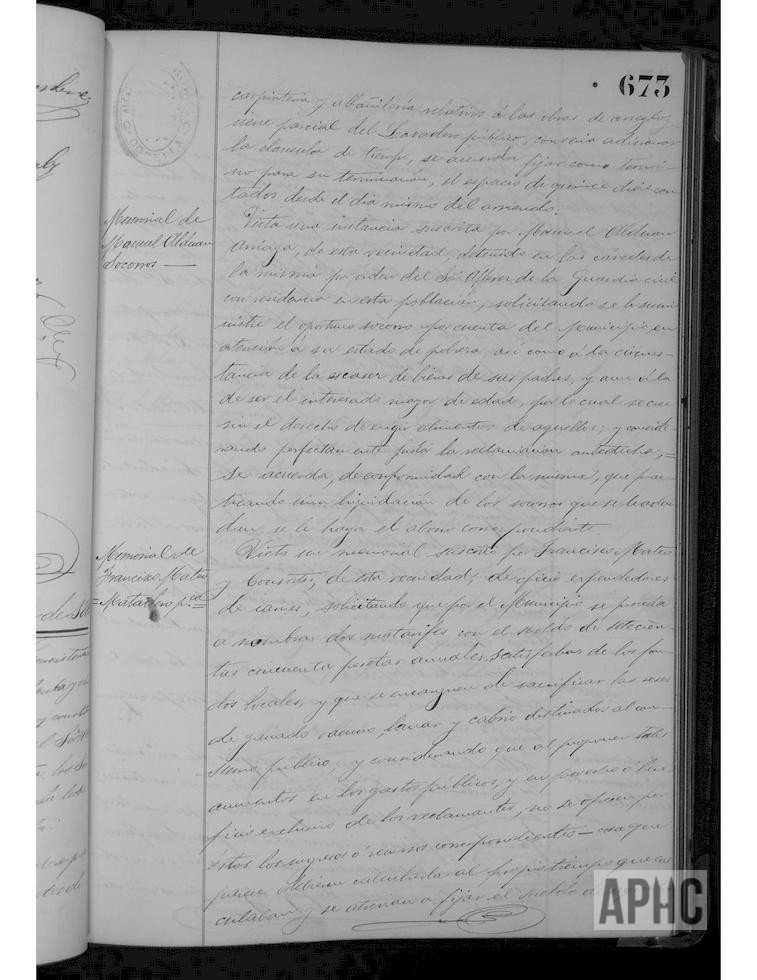 673
carpintería y albañilería relativos á las obras de arreglo,
parcial del Lavadero público, convenía adicionar
la cláusula de tiempo, se acuerda fijar como térmi-
no para su terminación, el espacio de quince días con-
tados desde el día mismo del arriendo.
Memorial de
Manuel Alduan
Socorros —
Vista una instancia suscrita por Manuel Alduan
Arriaga, de esta vecindad, detenido en las carceles de
la misma por orden del Sor. Alferez de la Guardia civil
con residencia en esta población, solicitando se le sumi-
nistre el oportuno socorro por cuenta del Municipio, en
atención á su estado de pobreza, así como á la circuns-
tancia de la escasez de bienes de sus padres, y aun á la
de ser el interesado mayor de edad, por lo cual se cree
sin el derecho de exigir alimentos de aquellos; y conside-
rando perfectamente justa la reclamación antedicha, =
se acuerda, de conformidad con la misma, que prac-
ticando una liquidación de los socorros que se le adeu-
dan, se le haga el abono correspondiente.
Memorial de
Francisco Mateo
= Matadero pco =
Visto un memorial suscrito por Francisco Mateo
y Consortes, de esta vecindad, de oficio expendedores
de carnes, solicitando que por el Municipio se proceda
a nombrar dos matarifes con el sueldo de setecien-
tas cincuenta pesetas anuales satisfechas de los fon-
dos locales, y que se encarguen de sacrificar las reses
de ganado vacuno, lanar y cabrío destinados al con-
sumo público; y considerando que al proponer tales
aumentos en los gastos públicos, y en provecho ó bene-
ficio exclusivo de los reclamantes, no se ofrecen por
éstos los ingresos ó recursos correspondientes — cosa que
parece debieran calcularla al propio tiempo que
calaban y se atrevían a fijar el sueldo de
APHC